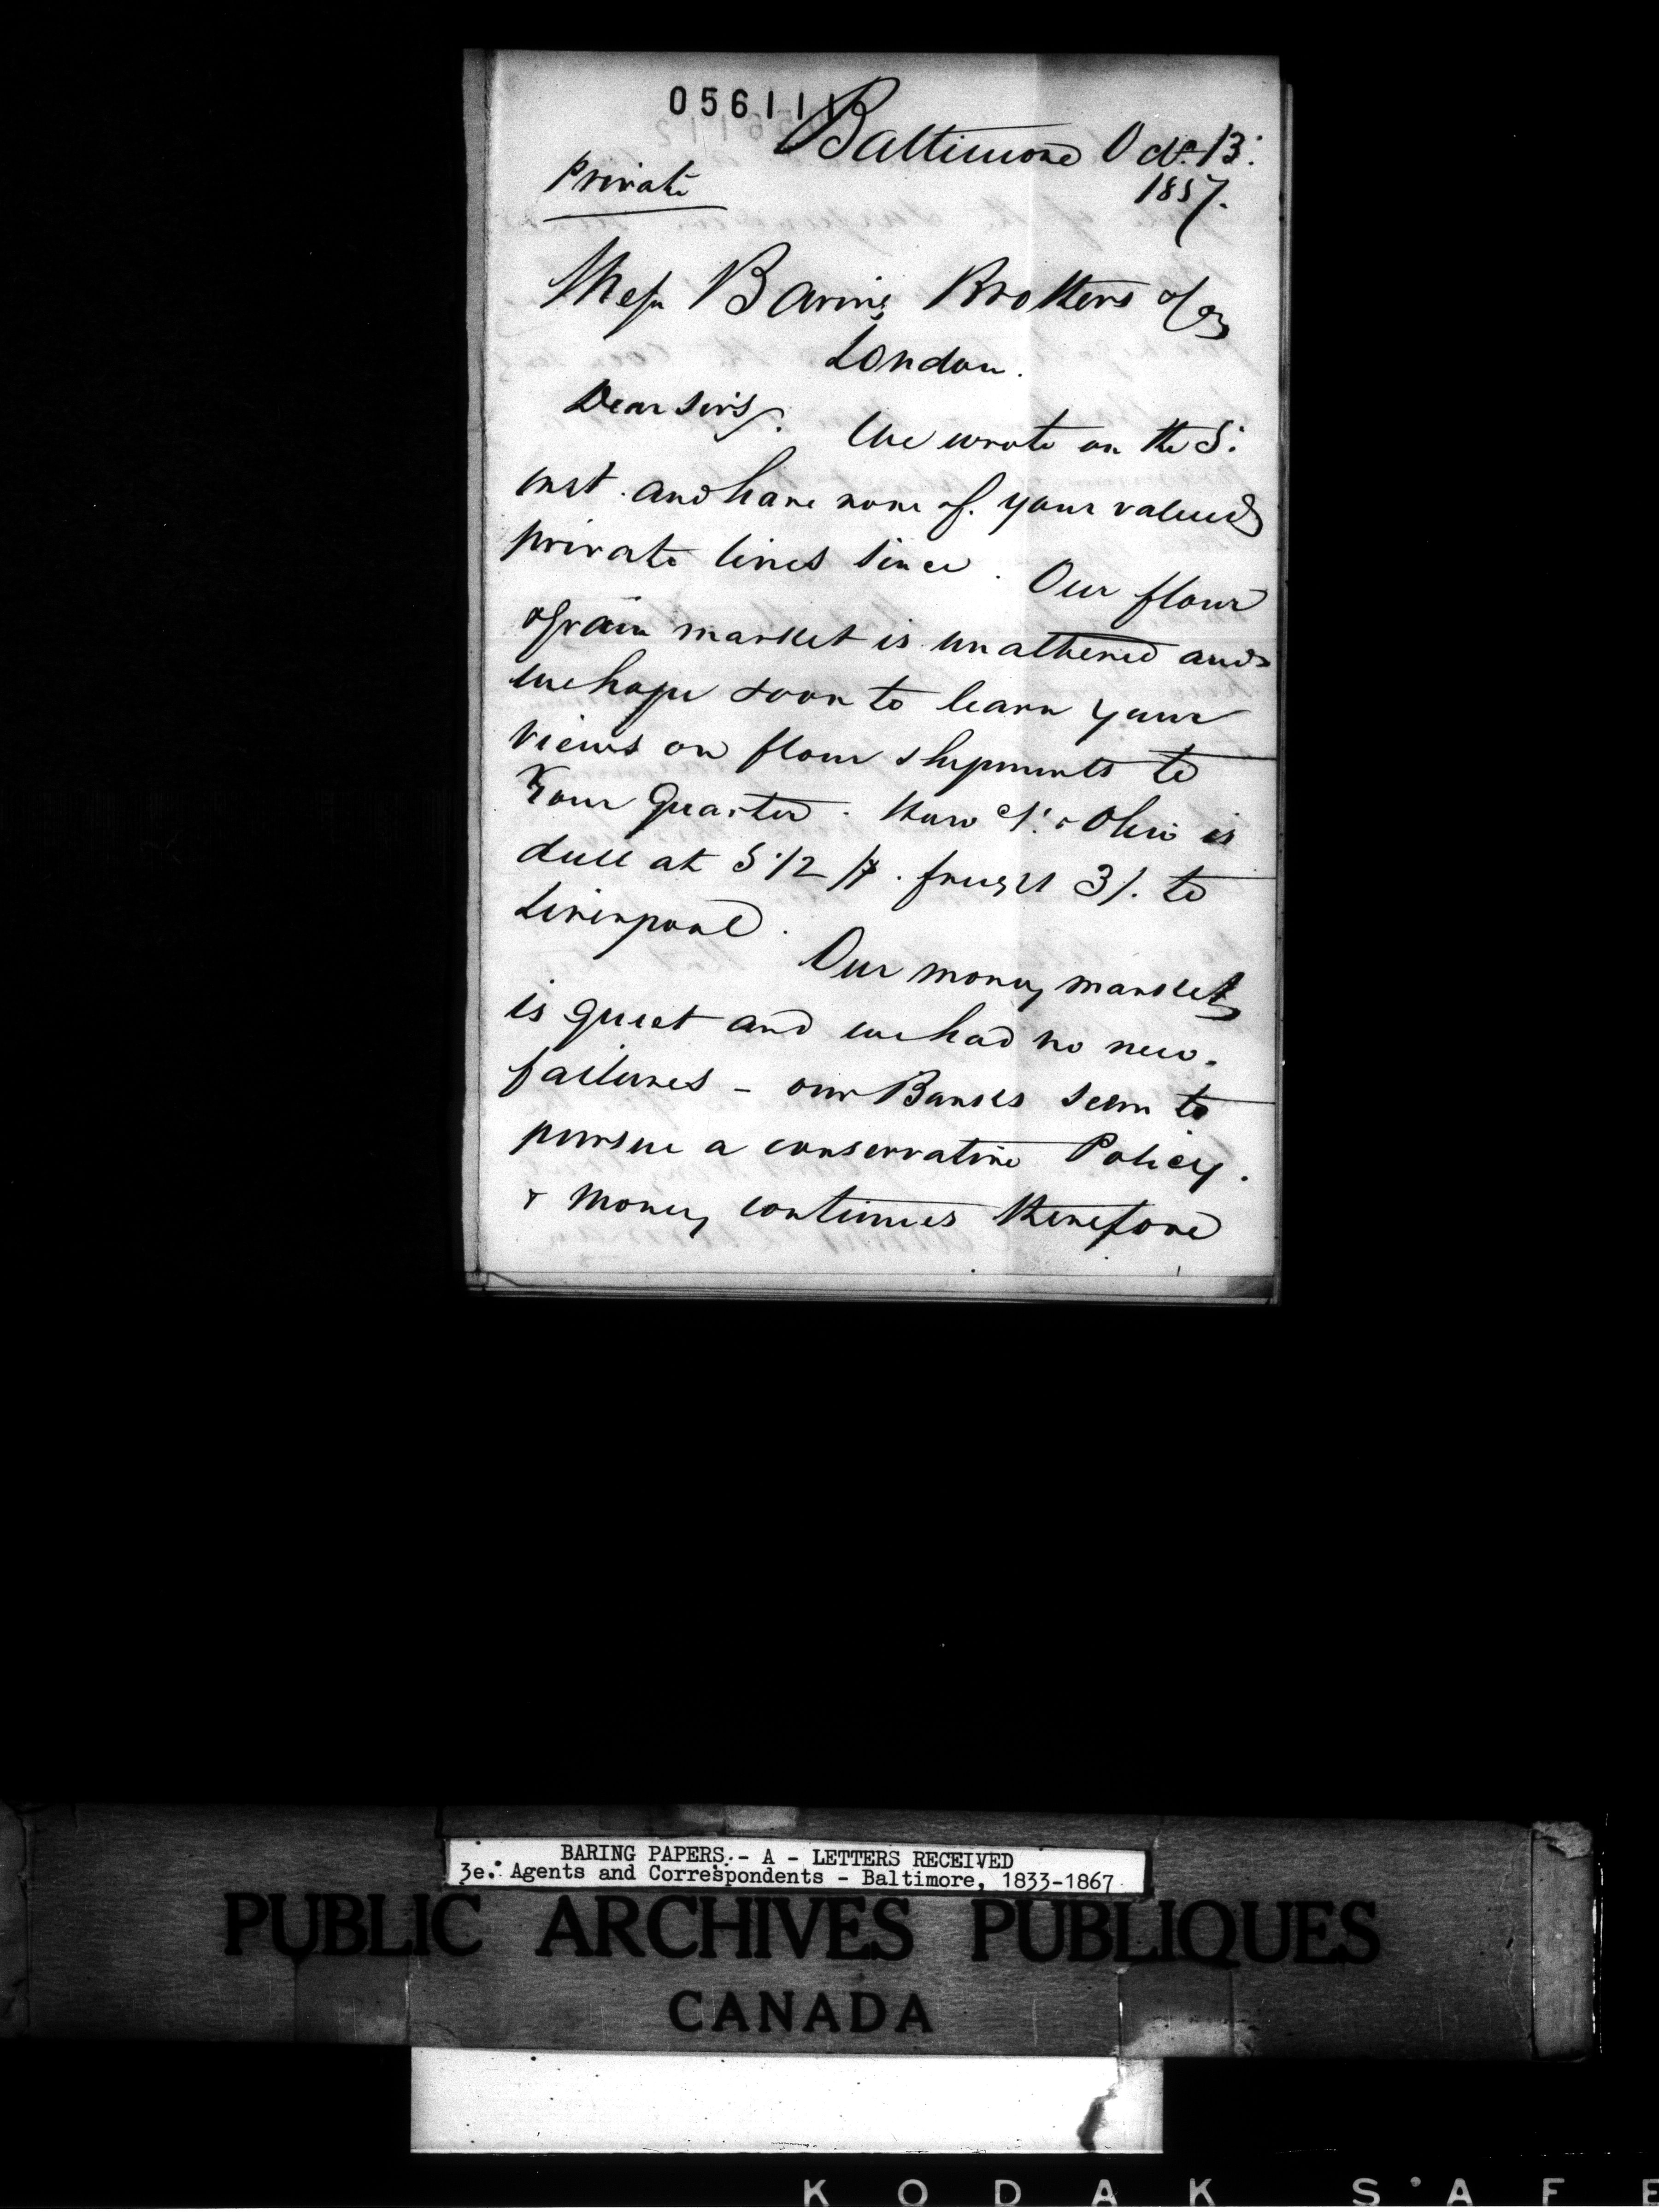 056111
Baltimore Oct. 13.
1857.
Private
Mess Baring Brothers & Co
London.
Dear Sirs,
We wrote on the 5.
inst. and have none of your valued
private lines since. Our flour
& grain market is unaltered and
we hope soon to learn your
views on flour shipments to
Your Quarter. How St. & Ohio is
dull at 5 1/2 $. freight 3/. to
Liverpool.
Our money market
is quiet and we had no new
failures - our Banks seem to
pursue a conservative Policy.
& Money continues therefore
BARING PAPERS. - A - LETTERS RECEIVED
3e. Agents and Correspondents - Baltimore, 1833-1867.
PUBLIC ARCHIVES PUBLIQUES
CANADA
KODAK SAFE